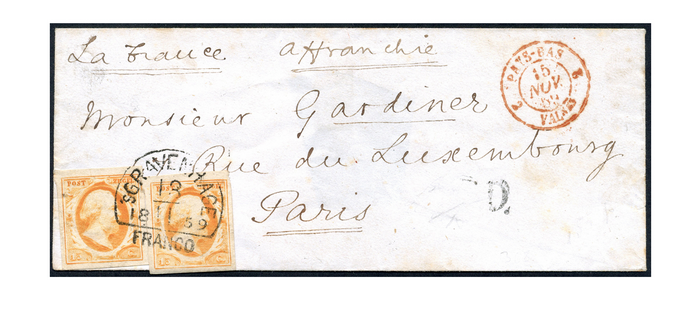 La France Affranchie
Monsieur Gardiner
Rue du Luxembourg
Paris
PAYS-BAS
15
NOV.
59
VALNES
POST
15
15
S GRAVENHAGE
18 59
FRANCO
D.